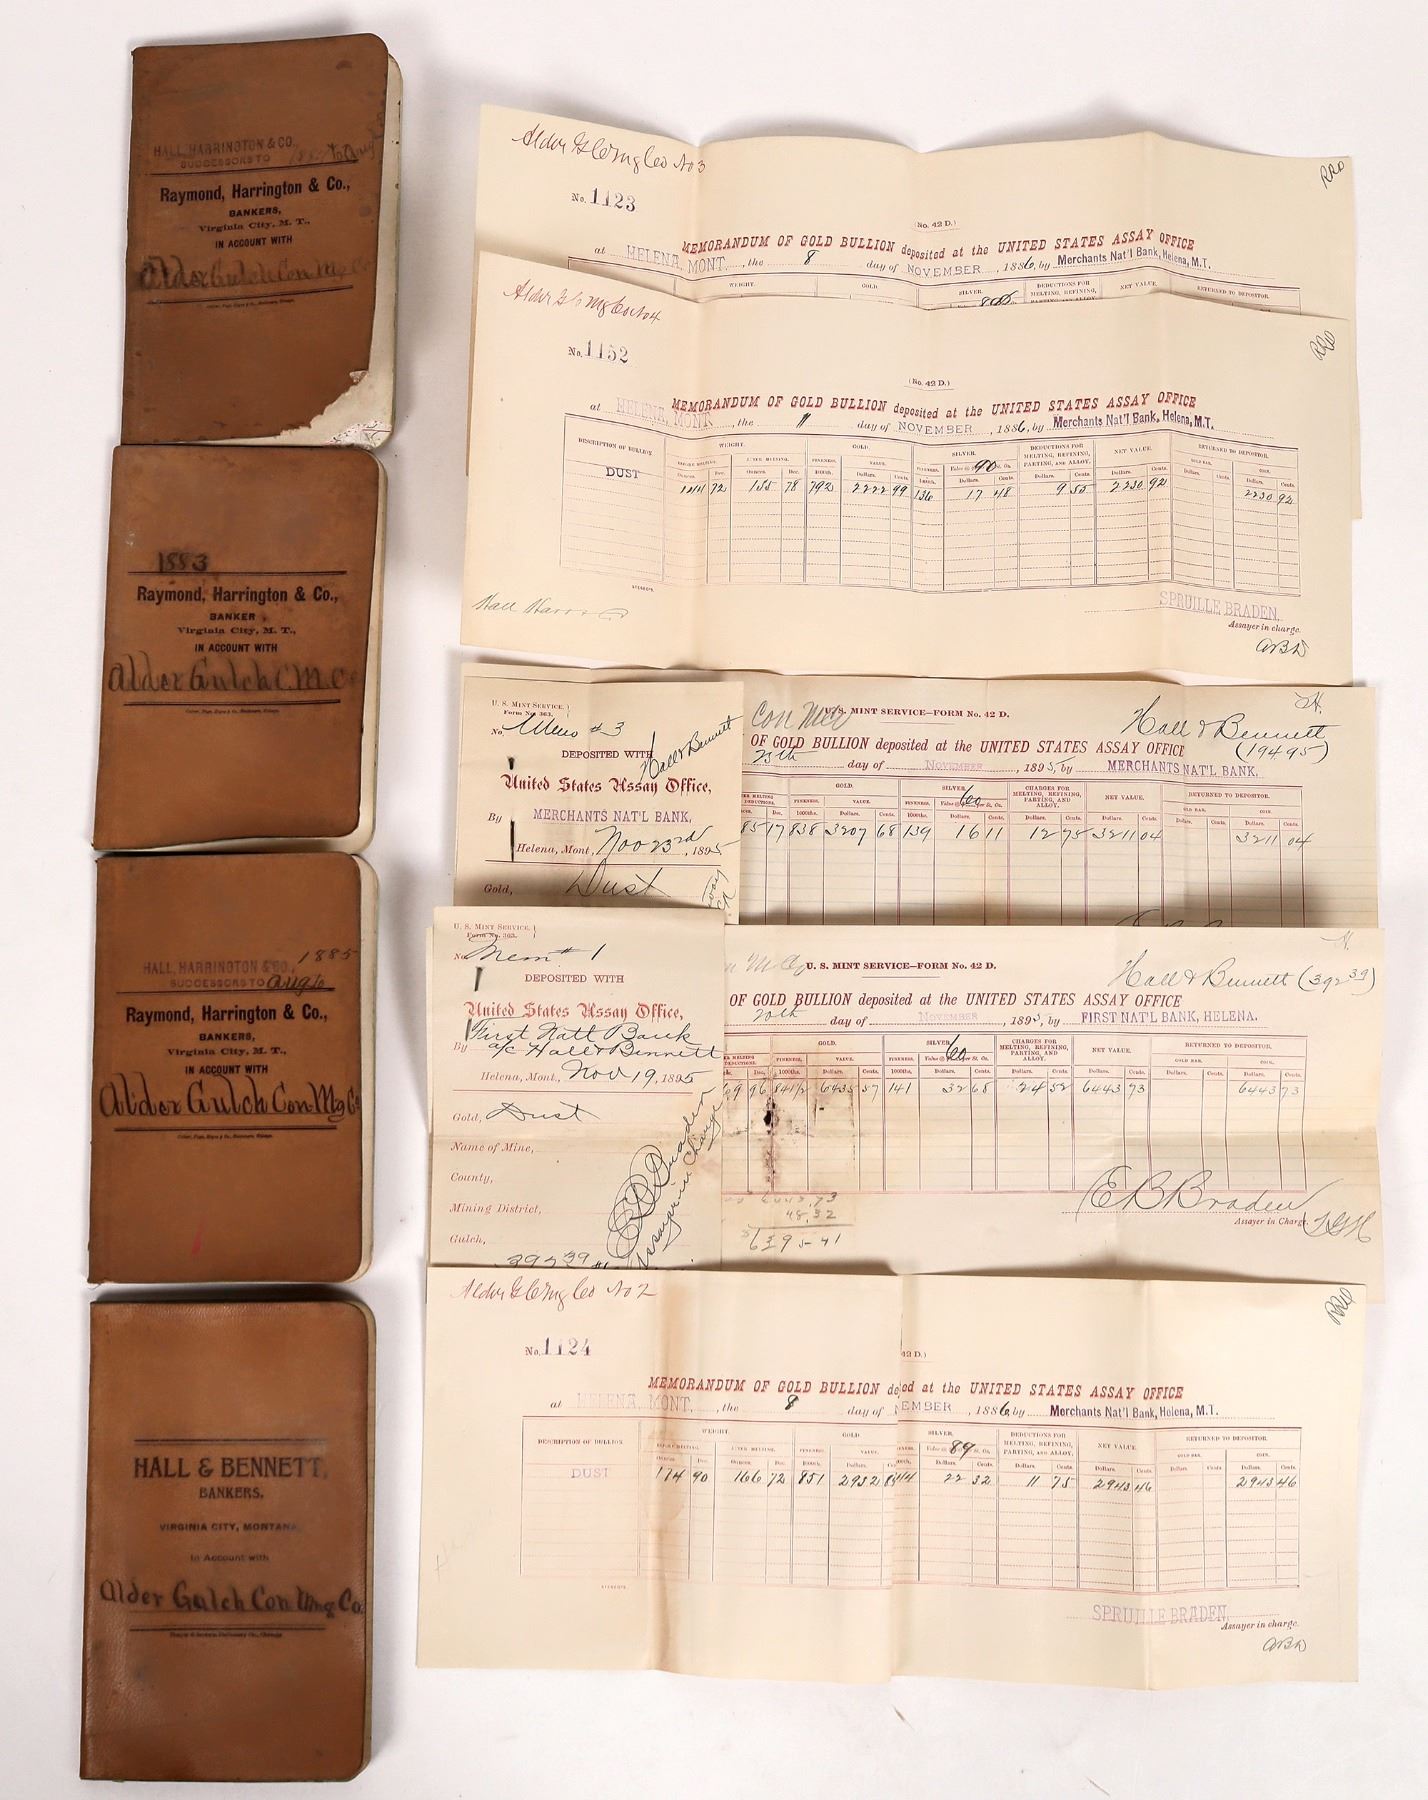 HALL, HARRINGTON & CO.
SUCCESSORS TO
Raymond, Harrington & Co.,
BANKERS,
Virginia City, M. T.,
IN ACCOUNT WITH
Alder Gulch Con Mg Co
1883
Raymond, Harrington & Co.,
BANKER
Virginia City, M. T.,
IN ACCOUNT WITH
Alder Gulch C. M. Co
1885
HALL, HARRINGTON & CO.,
SUCCESSORS TO Aug to
Raymond, Harrington & Co.,
BANKERS,
Virginia City, M. T.,
IN ACCOUNT WITH
Alder Gulch Con Mg Co
HALL & BENNETT,
BANKERS,
VIRGINIA CITY, MONTANA,
In Account with
Alder Gulch Con Mng Co.
Alder G C Mng Co No 3
No. 1123
(No. 42 D.)
MEMORANDUM OF GOLD BULLION deposited at the UNITED STATES ASSAY OFFICE
at HELENA, MONT., the 8 day of NOVEMBER, 1886, by Merchants Nat'l Bank, Helena, M.T.
WEIGHT. GOLD. SILVER. DEDUCTIONS FOR MELTING, REFINING, PARTING, AND ALLOY. NET VALUE. RETURNED TO DEPOSITOR.
Alder G C Mg Co No 4
No. 1152
(No. 42 D.)
MEMORANDUM OF GOLD BULLION deposited at the UNITED STATES ASSAY OFFICE
at HELENA, MONT., the 11 day of NOVEMBER, 1886, by Merchants Nat'l Bank, Helena, M.T.
DESCRIPTION OF BULLION. WEIGHT. GOLD. SILVER. DEDUCTIONS FOR MELTING, REFINING, PARTING, AND ALLOY. NET VALUE. RETURNED TO DEPOSITOR.
BEFORE MELTING. AFTER MELTING. FINENESS. VALUE. FINENESS. Value @ 90 St. Oz. GOLD BAR. COIN.
DUST 72 155 78 792 2222 99 136 17 48 9 55 2230 92 2230 92
SPRUILLE BRADEN,
Assayer in charge.
Hall Harr & Co
U. S. MINT SERVICE.
Form No. 363.
No. Memo # 3
Hall & Bennett
DEPOSITED WITH
United States Assay Office,
By MERCHANTS NAT'L BANK,
Helena, Mont., Nov 23rd, 1895
Gold, Dust
Con M Co
U. S. MINT SERVICE—FORM No. 42 D.
Hall & Bennett
(19495)
OF GOLD BULLION deposited at the UNITED STATES ASSAY OFFICE
25th day of NOVEMBER, 1895, by MERCHANTS NAT'L BANK.
GOLD. SILVER. CHARGES FOR MELTING, REFINING, PARTING, AND ALLOY. NET VALUE. RETURNED TO DEPOSITOR.
FINENESS. VALUE. FINENESS. Value @ 60 per St. Oz. GOLD BAR. COIN.
85 17 838 3207 68 139 16 11 12 75 3211 04 3211 04
U. S. MINT SERVICE.
Form No. 363.
No. Mem # 1
DEPOSITED WITH
United States Assay Office,
First Natl Bank
By a/c Hall & Bennett
Helena, Mont., Nov 19, 1895
Gold, Dust
Name of Mine,
County,
Mining District,
Gulch,
E B Braden
Assayer in Charge
U. S. MINT SERVICE—FORM No. 42 D.
Hall & Bennett (392 39)
OF GOLD BULLION deposited at the UNITED STATES ASSAY OFFICE
20th day of NOVEMBER, 1895, by FIRST NAT'L BANK, HELENA.
GOLD. SILVER. CHARGES FOR MELTING, REFINING, PARTING, AND ALLOY. NET VALUE. RETURNED TO DEPOSITOR.
FINENESS. VALUE. FINENESS. Value @ 60 per St. Oz. GOLD BAR. COIN.
69 96 841½ 6435 57 141 32 68 24 52 6443 73 6443 73
6443.73
48.32
6395-41
E B Braden
Assayer in Charge.
Alder G C Mg Co No 2
No. 1124
42 D.)
MEMORANDUM OF GOLD BULLION de ed at the UNITED STATES ASSAY OFFICE
at HELENA, MONT., the 8 day of EMBER, 1886, by Merchants Nat'l Bank, Helena, M.T.
DESCRIPTION OF BULLION WEIGHT. GOLD SILVER. DEDUCTIONS FOR MELTING, REFINING, PARTING, AND ALLOY. NET VALUE. RETURNED TO DEPOSITOR.
BEFORE MELTING. AFTER MELTING. FINENESS. VALUE. Value @ 89 St. Oz. GOLD BAR. COIN.
DUST 174 90 166 72 851 2932 22 32 11 75 2943 46 2943 46
SPRUILLE BRADEN,
Assayer in charge.